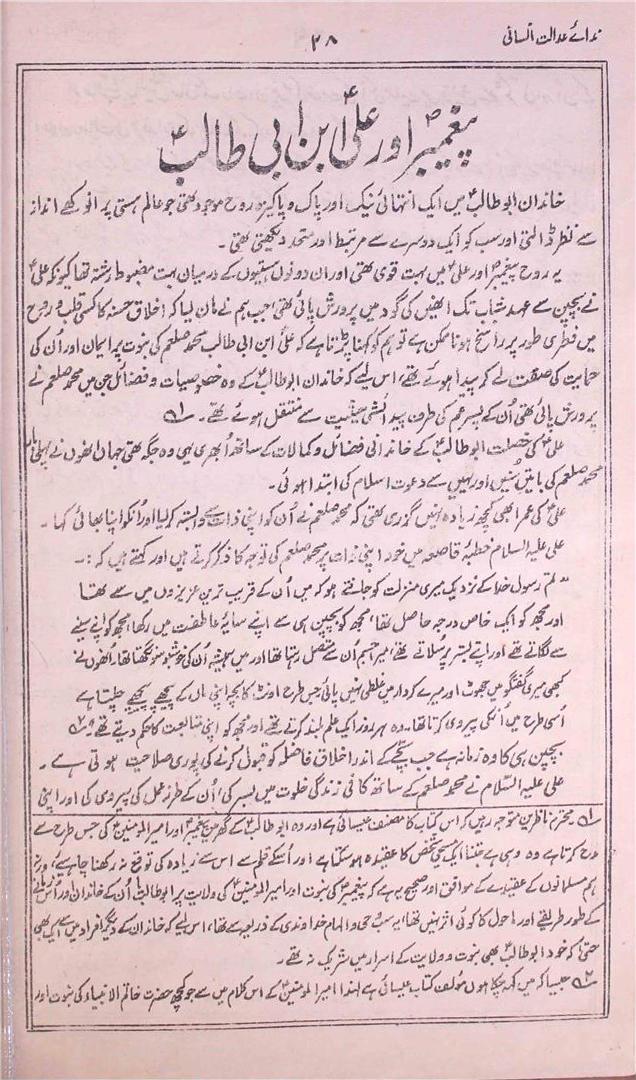 ندائے عدالت انسانی
۲۸
پیغمبرؐ اور علیؑ ابن ابی طالبؑ
خاندان ابو طالبؑ میں ایک انتہائی نیک اور پاک و پاکیزہ روح موجود تھی جو عالم ہستی پر انوکھے انداز
سے نظر ڈالتی اور سب کو ایک دوسرے سے مرتبط اور متحد دیکھتی تھی۔
یہ روح پیغمبرؐ اور علیؑ میں بہت قوی تھی اور ان دونوں ہستیوں کے درمیان بہت مضبوط رشتہ تھا کیونکہ علیؑ
نے بچپن سے عہد شباب تک انھیں کی گود میں پرورش پائی تھی جب ہم نے مان لیا کہ اخلاق حسنہ کا کسی قلب و روح
میں فطری طور پر راسخ ہونا ممکن ہے تو ہم کو کہنا پڑتا ہے کہ علیؑ ابن ابی طالب محمد صلعم کی نبوت پر ایمان اور اُن کی
حمایت کی صفت لے کر پیدا ہوئے تھے، اس لیے کہ خاندان ابو طالبؑ کے وہ خصوصیات و فضائل جن میں محمد صلعم نے
پرورش پائی تھی اُن کے پسر عم کی طرف پیدائشی حیثیت سے منتقل ہوئے تھے۔ ؎۱
علیؑ کی خصلت ابو طالبؑ کے خاندانی فضائل و کمالات کے ساتھ اُبھری یہی وہ جگہ تھی جہاں انھوں نے پہلی بار
محمد صلعم کی باتیں سُنیں اور یہیں سے دعوت اسلام کی ابتدا ہوئی۔
علیؑ کی عمر ابھی کچھ زیادہ نہیں گزری تھی کہ محمد صلعم نے اُن کو اپنی ذات سے وابستہ کر لیا اور انکو اپنا بھائی کہا۔
علی علیہ السلام خطبۂ قاصعہ میں خود اپنی ذات پر محمد صلعم کی توجہ کا ذکر کرتے ہیں اور کہتے ہیں کہ :۔
”تم رسول خدا کے نزدیک میری منزلت کو جانتے ہو کہ میں اُن کے قریب ترین عزیزوں میں سے تھا
اور مجھ کو ایک خاص درجہ حاصل تھا، مجھ کو بچپن ہی سے اپنے سایۂ عاطفت میں رکھا، مجھ کو اپنے سینے
سے لگاتے تھے اور اپنے بستر پر سلاتے تھے، میرا جسم اُن سے متصل رہتا تھا اور میں ہمیشہ اُن کی خوشبو سونگھتا تھا۔ انھوں نے
کبھی میری گفتگو میں جھوٹ اور میرے کردار میں غلطی نہیں پائی جس طرح اونٹ کا بچہ اپنی ماں کے پیچھے پیچھے چلتا ہے
اُسی طرح میں اُنکی پیروی کرتا تھا۔ وہ ہر روز ایک علم بلند کرتے تھے اور مجھ کو اپنی متابعت کا حکم دیتے تھے“ ؎۲
بچپن ہی کا وہ زمانہ ہے جب بچے کے اندر اخلاق فاضلہ کو قبول کرنے کی پوری صلاحیت ہوتی ہے۔
علی علیہ السّلام نے محمد صلعم کے ساتھ کافی زندگی خلوت میں بسر کی، اُن کے طرز عمل کی پیروی کی اور اپنی
؎۱ محترم ناظرین متوجہ رہیں کہ اس کتاب کا مصنف عیسائی ہے اور وہ ابو طالبؑ کے گھر میں پیغمبرؐ اور امیر المومنینؑ کی جس طرح سے
مدح کرتا ہے وہ وہی ہے جتنا ایک مسیحی شخص کا عقیدہ ہو سکتا ہے اور اُسکے قلم سے اس سے زیادہ کی توقع نہ رکھنا چاہیے، ورنہ
ہم مسلمانوں کے عقیدے کے موافق اور صحیح یہ ہے کہ پیغمبرؐ کی نبوت اور امیر المومنینؑ کی ولایت پر ابو طالبؑ اُن کے خاندان اور اُس زمانے
کے طور طریقے اور ماحول کا کوئی اثر نہیں تھا، یہ سب وحی و الہام خداوندی کے ذریعہ سے تھا، اس لیے کہ خاندان کے دیگر افراد میں سے ایک بھی
حتیٰ کہ خود ابو طالبؑ بھی نبوت و ولایت کے اسرار میں شریک نہ تھے۔
؎۲ جیسا کہ میں کہہ چکا ہوں مولف کتاب عیسائی ہے لہذا امیر المومنینؑ کے اس کلام میں سے جو کچھ حضرت خاتم الانبیاء کی نبوت اور